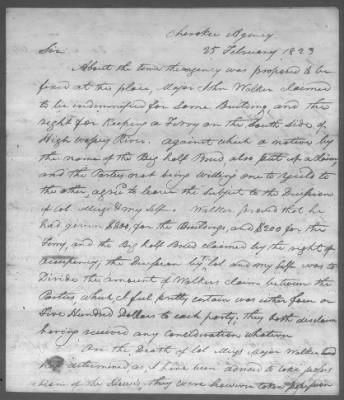 Cherokee Agency
25 February 1823
Sir
About the time the agency was proposed to be
fixed at this place, Major John Walker claimed
to be indemnified for some Buildings, and the
right for keeping a Ferry on the South side of
High wassey River. against which a native by
the name of the Big half Breed also put up a claim
and the Parties not being willing one to yield to
the other, agreed to leave the subject to the Decision
of Col. Meigs & my self. Walker proved that he
had given $600, for the Buildings, and $200 for the
Ferry, and the Big half Breed claimed by the right of
occupency, the Decision by Col and my self was to
Divide the amount of Walkers claim between the
Parties, which I feel pretty certain was either four or
Five Hundred Dollars to each party, they both disclaim
having received any concideration whatever
On the Death of Col Meigs Major Walker had
determined, as I have been advised to take posses
sion of the House, they were however taken possession